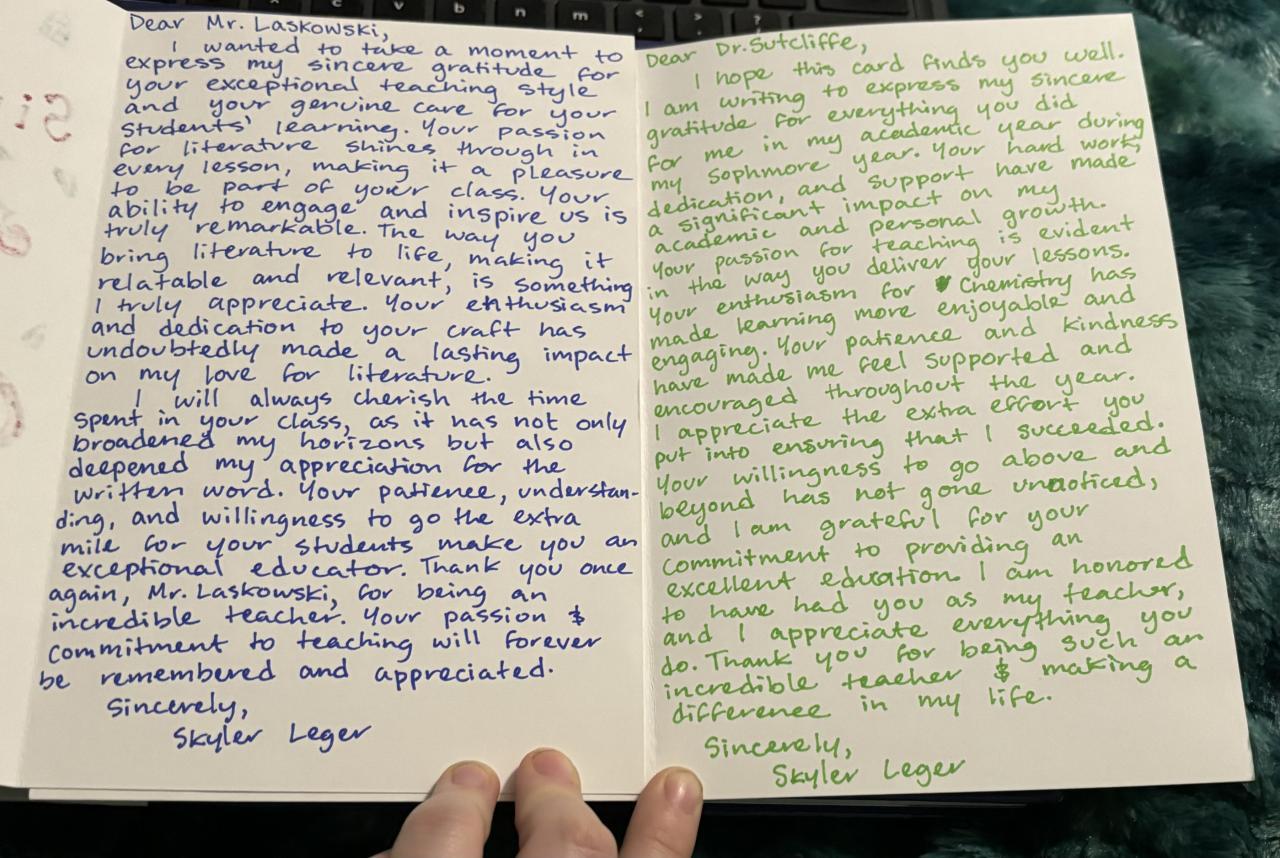 Dear Mr. Laskowski,
I wanted to take a moment to
express my sincere gratitude for
your exceptional teaching style
and your genuine care for your
students' learning. Your passion
for literature shines through in
every lesson, making it a pleasure
to be part of your class. Your
ability to engage and inspire us is
truly remarkable. The way you
bring literature to life, making it
relatable and relevant, is something
I truly appreciate. Your enthusiasm
and dedication to your craft has
undoubtedly made a lasting impact
on my love for literature.
I will always cherish the time
spent in your class, as it has not only
broadened my horizons but also
deepened my appreciation for the
written word. Your patience, understan-
ding, and willingness to go the extra
mile for your students make you an
exceptional educator. Thank you once
again, Mr. Laskowski, for being an
incredible teacher. Your passion &
commitment to teaching will forever
be remembered and appreciated.
Sincerely,
Skyler Leger
Dear Dr. Sutcliffe,
I hope this card finds you well.
I am writing to express my sincere
gratitude for everything you did
for me in my academic year during
my sophmore year. Your hard work,
dedication, and support have made
a significant impact on my
academic and personal growth.
Your passion for teaching is evident
in the way you deliver your lessons.
Your enthusiasm for Chemistry has
made learning more enjoyable and
engaging. Your patience and kindness
have made me feel supported and
encouraged throughout the year.
I appreciate the extra effort you
put into ensuring that I succeeded.
Your willingness to go above and
beyond has not gone unnoticed,
and I am grateful for your
commitment to providing an
excellent education. I am honored
to have had you as my teacher,
and I appreciate everything you
do. Thank you for being such an
incredible teacher & making a
difference in my life.
Sincerely,
Skyler Leger
c v b n m < > ?